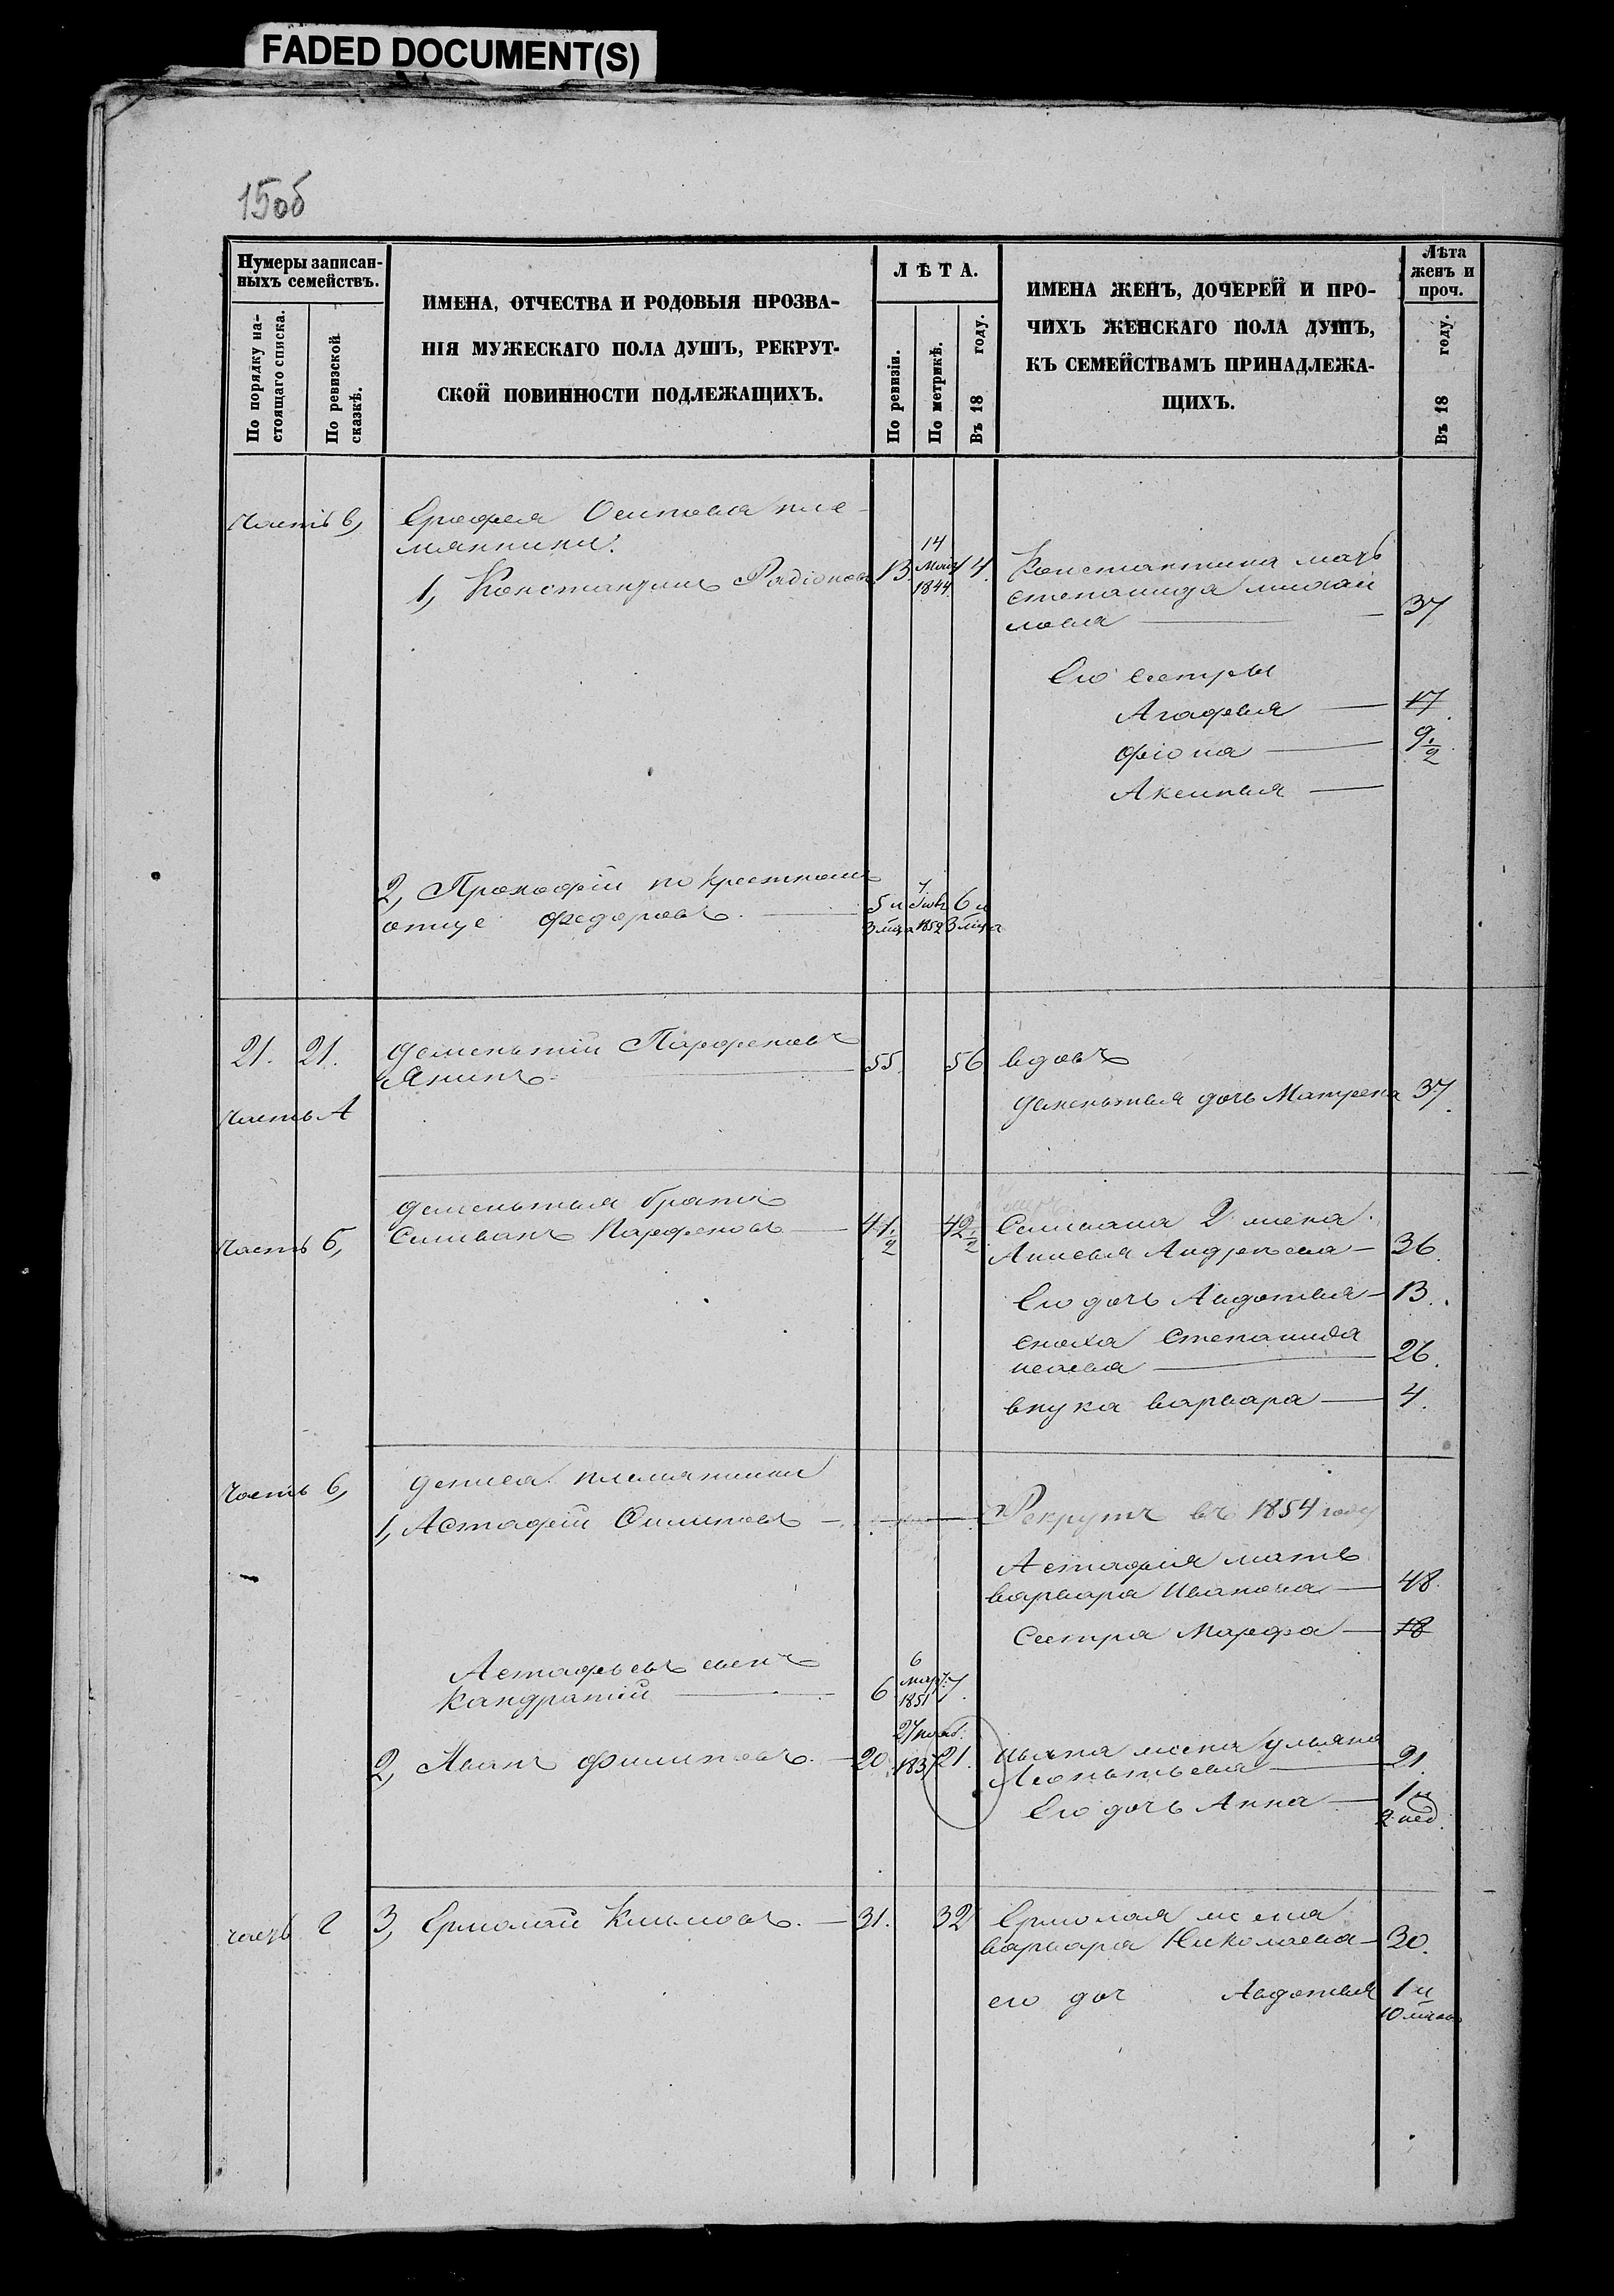 FADED DOCUMENT(S)
15об
Нумеры записан-
ныхъ семействъ.
По порядку на-
стоящаго списка.
По ревизской
сказкѣ.
ИМЕНА, ОТЧЕСТВА И РОДОВЫЯ ПРОЗВА-
НІЯ МУЖЕСКАГО ПОЛА ДУШЪ, РЕКРУТ-
СКОЙ ПОВИННОСТИ ПОДЛЕЖАЩИХЪ.
ЛѢТА.
По ревизіи.
По метрикѣ.
Въ 18 году.
ИМЕНА ЖЕНЪ, ДОЧЕРЕЙ И ПРО-
ЧИХЪ ЖЕНСКАГО ПОЛА ДУШЪ,
КЪ СЕМЕЙСТВАМЪ ПРИНАДЛЕЖА-
ЩИХЪ.
Лѣта
женъ и
проч.
Въ 18 году.
Часть в,
Ерофея Осипова пле-
мянники.
1, Константинъ Радіоновъ 13 14 Мая 1844 14
Константина мать
степанида михаи
лова — 37
Его сестры
Агафья — 17
фіона — 9 1/2
Аксинья —
2, Прокофій по крестном
отце федоровъ. — 5 и 3 мца 1852 6 и 3 мца
21. 21. дементій Парфеновъ
Янинъ — 55. 56 вдовъ
часть А
дементья дочь Матрена 37.
дементья братъ
Часть б, Силиванъ Парфеновъ — 41 1/2 42 1/2
Силивана 2 жена
Анисья Андреева — 36.
Его дочь Авдотья — 13.
сноха Степанида
— 26.
внука варвара — 4.
Часть в, племянники
1, Астафій Филиповъ — Рекрутъ въ 1854 году
Астафія мать
варвара Иванова — 48.
Сестра Марфа — 18
Астафьевъ сынъ
Кандратій — 6 6 март. 1851 7.
2, Иванъ филиповъ. — 20 27 нояб. 1837 21.
Ивана жена ульяна
Леонтьева — 21.
Его дочь Анна — 1 и
2 нед.
часть г 3, Ермолай Климовъ. — 31. 32
Ермолая жена
варвара Николаева — 30.
его доч Авдотья 1 и
10 мцовъ